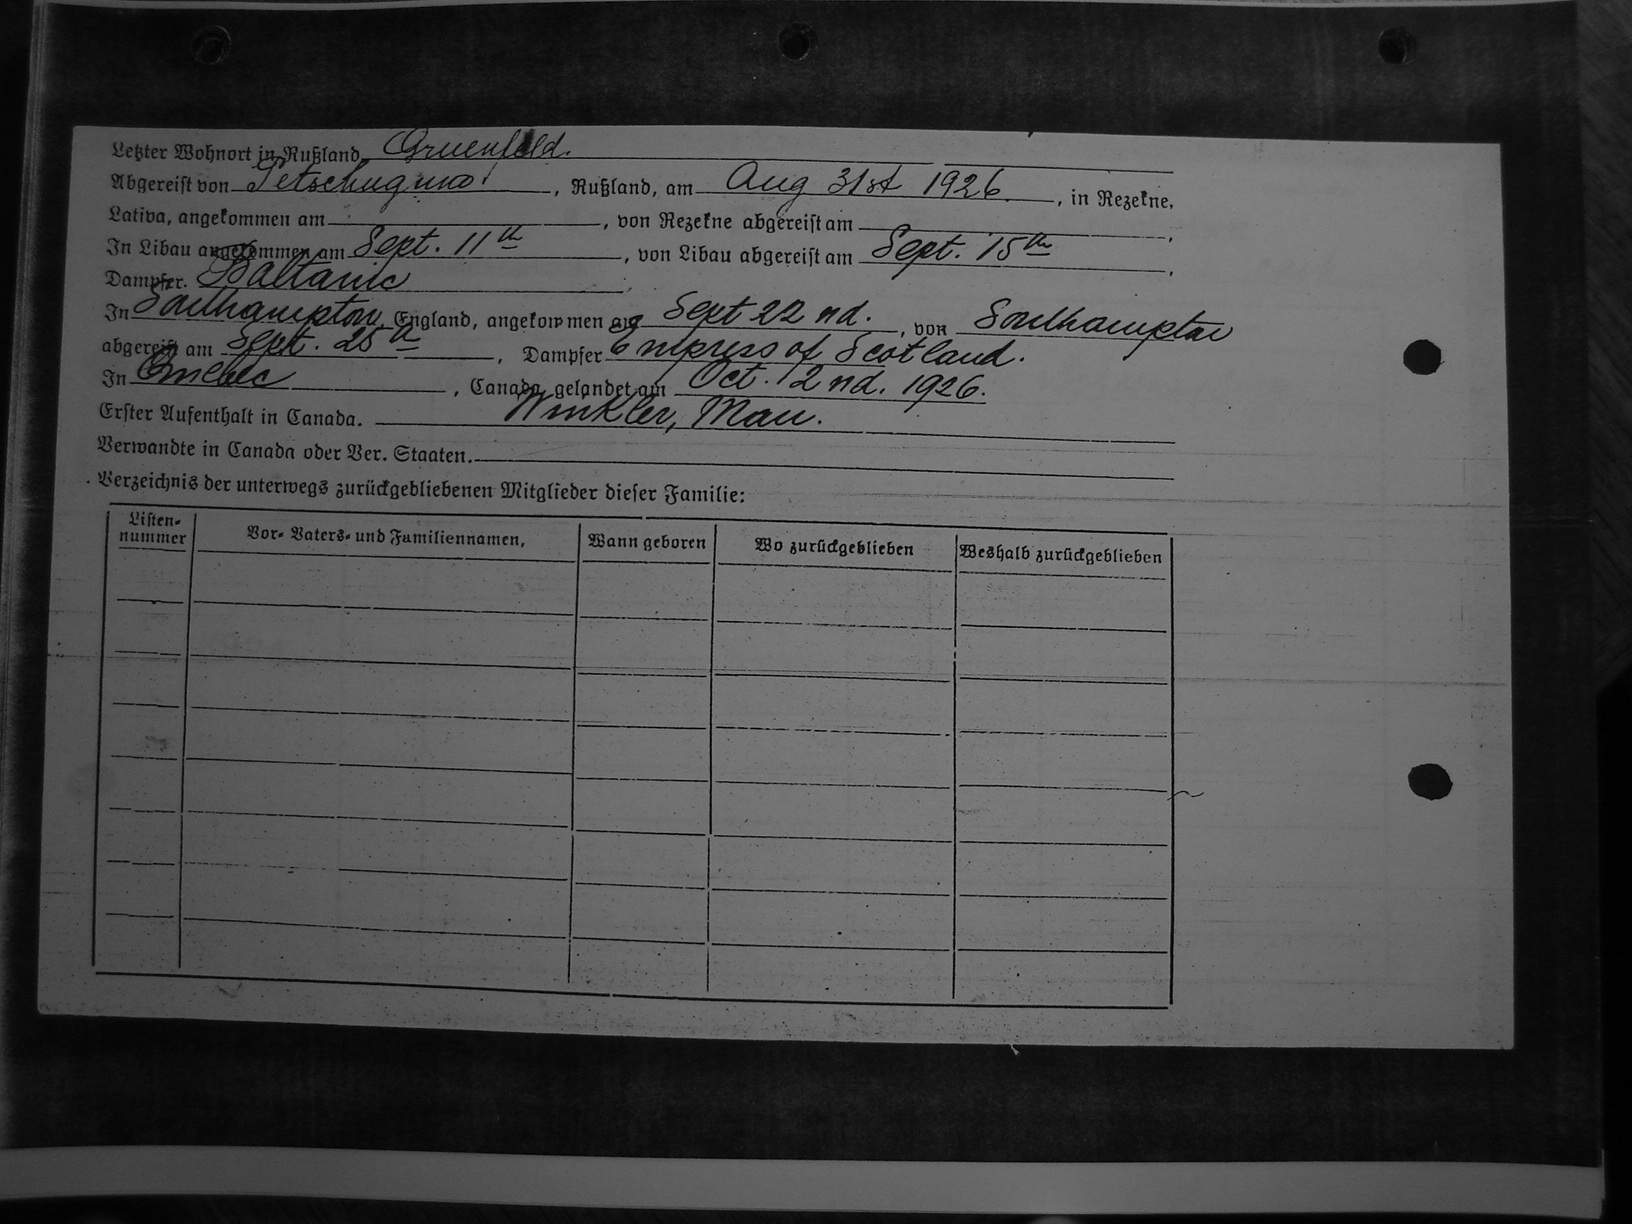 Letzter Wohnort in Rußland, Gruenfeld.
Abgereist von , Rußland, am Aug 31st 1926. , in Rezekne,
Lativa, angekommen am , von Rezekne abgereist am ,
In Libau angekommen am Sept. 11th , von Libau abgereist am Sept. 15th ,
Dampfer. Baltanic
In Southampton, England, angekommen am Sept 22 nd. , von Southampton
abgereist am Sept. 25th , Dampfer Empress of Scotland.
In Quebec , Canada, gelandet am Oct. 2 nd. 1926.
Erster Aufenthalt in Canada. Winkler, Man.
Verwandte in Canada oder Ver. Staaten.
Verzeichnis der unterwegs zurückgebliebenen Mitglieder dieser Familie:
Listen-
nummer
Vor- Vaters- und Familiennamen,
Wann geboren
Wo zurückgeblieben
Weshalb zurückgeblieben